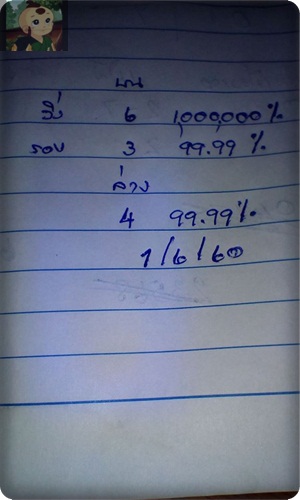 บน
วิ่ง 6 1,000,000%
รอง 3 99.99%
ล่าง
4 99.99%
1/6/60